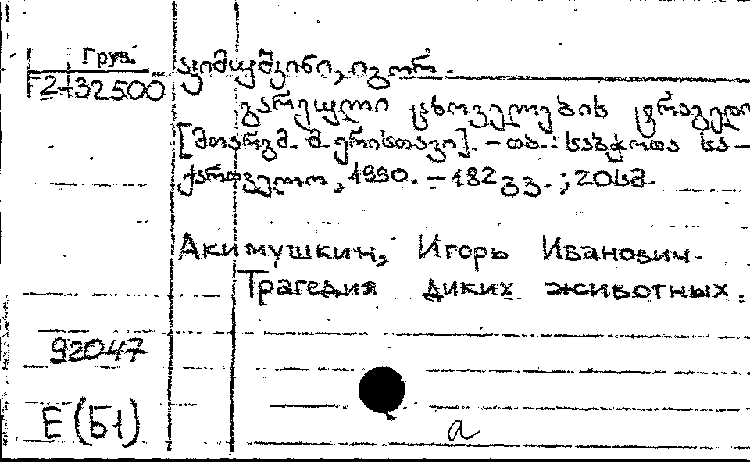 Груз.
Г2-32500
აკიმუშკინი, იგორ.
გარეული ცხოველების ტრაგედი
[მთარგმ. მ. ერისთავი]. – თბ.: საბჭოთა სა–
ქართველო, 1990. – 182 გვ.; 20 სმ.
Акимушкин, Игорь Иванович.
Трагедия диких животных.
92047
Е(Б1)
a